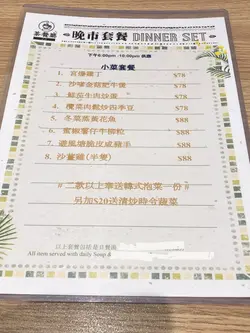 晚市套餐 DINNER SET
下午6:00pm -10:00pm 供應
小菜套餐
1. 宮爆雞丁 $78
2. 沙嗲金菇肥牛煲 $78
3. 鮮茄牛肉炒蛋 $78
4. 欖菜肉鬆炒四季豆 $78
5. 冬菜蒸黃花魚 $88
6. 蜜椒薯仔牛柳粒 $88
7. 避風塘脆皮咸豬手 $88
8. 沙薑雞(半隻) $88
# 二款以上章送韓式泡菜一份 #
另加$20送清炒時令蔬菜
以上套餐包括是日餐湯
All item served with daily Soup &